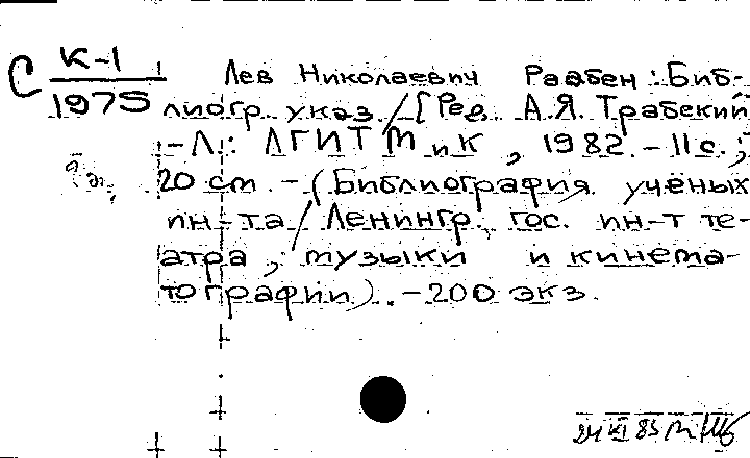 С К-1
1975
Лев Николаевич Раабен: Биб-
лиогр. указ. / [Ред. А.Я. Трабский
- Л.: ЛГИТМиК, 1982. - 11 с.;
20 см. - (Библиография учёных
ин-та / Ленингр. гос. ин-т те-
атра, музыки и кинема-
тографии). - 200 экз.